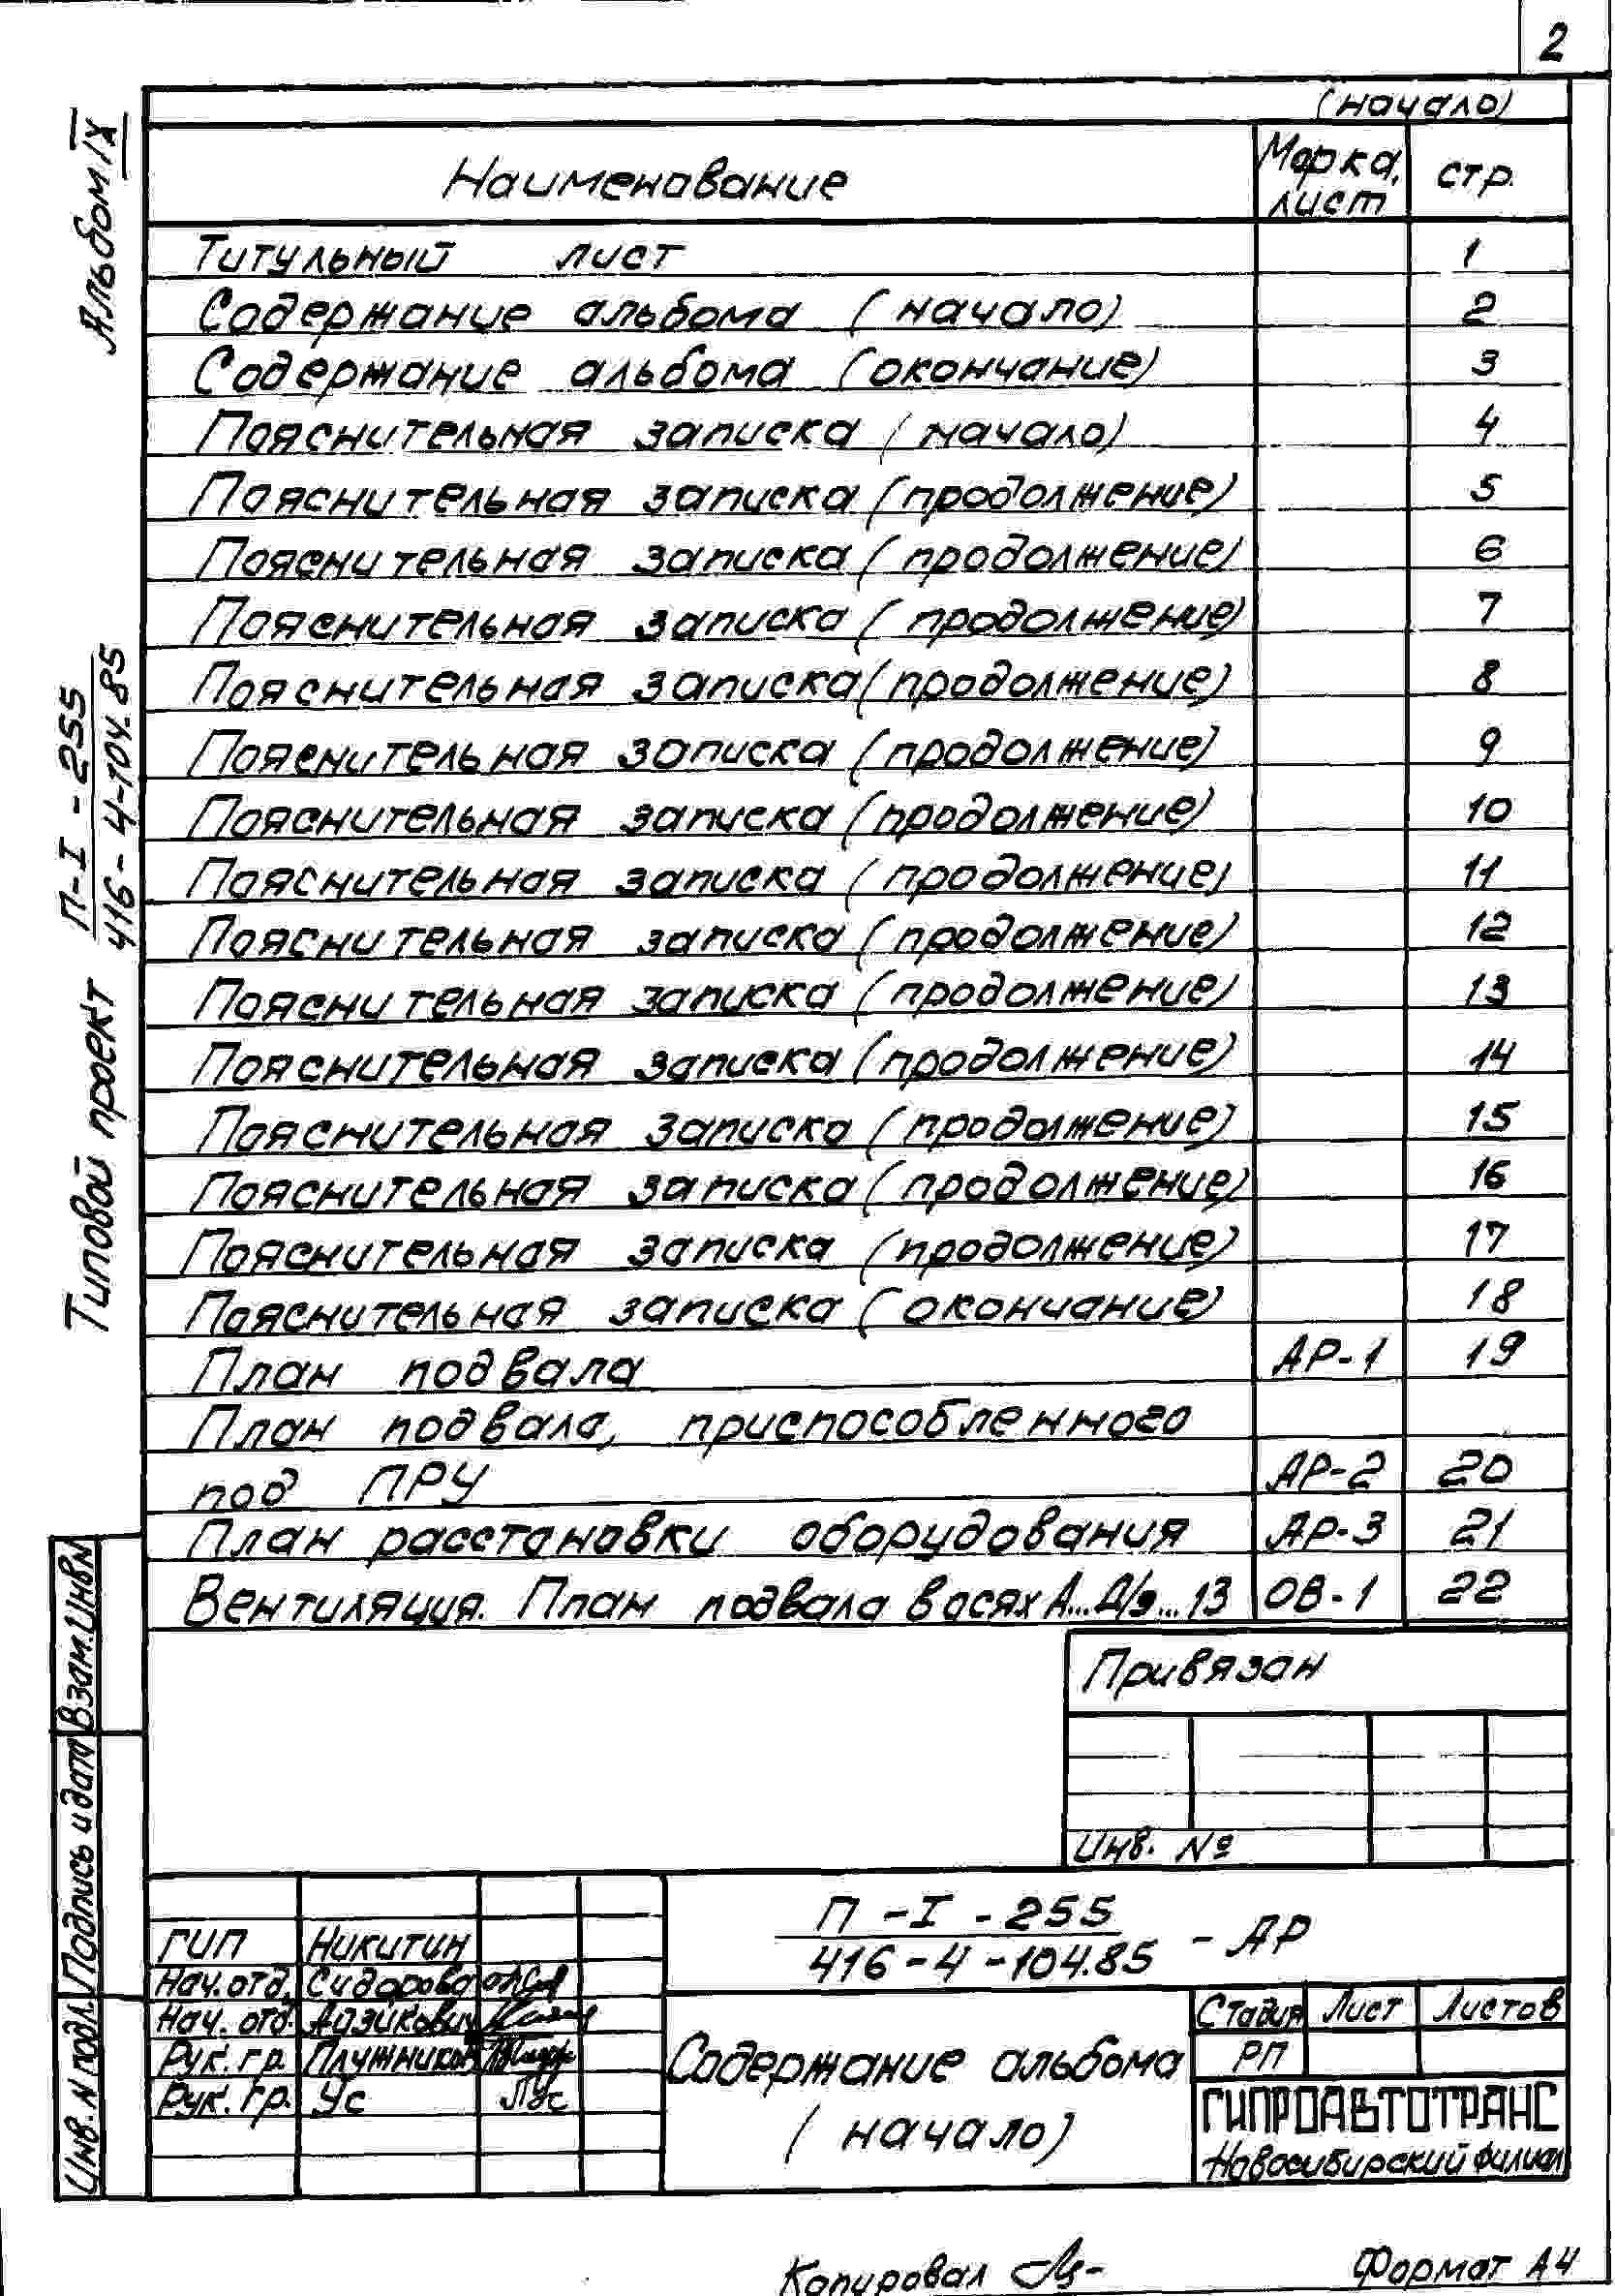 2
(начало)
Наименование
Марка, лист
стр.
Титульный лист 1
Содержание альбома (начало) 2
Содержание альбома (окончание) 3
Пояснительная записка (начало) 4
Пояснительная записка (продолжение) 5
Пояснительная записка (продолжение) 6
Пояснительная записка (продолжение) 7
Пояснительная записка (продолжение) 8
Пояснительная записка (продолжение) 9
Пояснительная записка (продолжение) 10
Пояснительная записка (продолжение) 11
Пояснительная записка (продолжение) 12
Пояснительная записка (продолжение) 13
Пояснительная записка (продолжение) 14
Пояснительная записка (продолжение) 15
Пояснительная записка (продолжение) 16
Пояснительная записка (продолжение) 17
Пояснительная записка (окончание) 18
План подвала АР-1 19
План подвала, приспособленного
под ПРУ АР-2 20
План расстановки оборудования АР-3 21
Вентиляция. План подвала в осях А...Д/9...13 ОВ-1 22
Привязан
Инв. №
П-I-255
416-4-104.85 - АР
ГИП Никитин
Нач. отд. Сидорова
Нач. отд. Айзикович
Рук. гр. Плужников
Рук. гр. Ус
Содержание альбома
(начало)
Стадия Лист Листов
РП
ГИПРОАВТОТРАНС
Новосибирский филиал
Копировал
Формат А4
Альбом IX
Типовой проект П-I-255
416-4-104.85
Взам. Инв N
Подпись и дата
Инв. N подл.